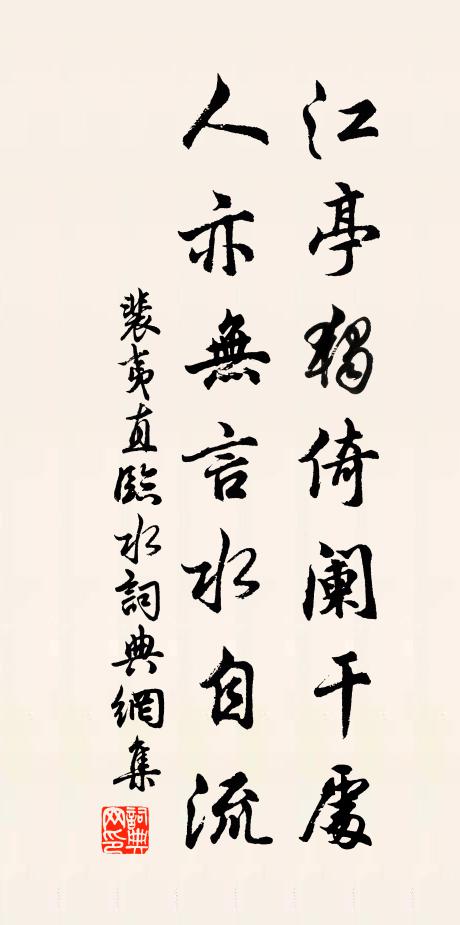 江亭獨倚闌干處
人亦無言水自流
裴夷直臨水詞典網集
詞典網印